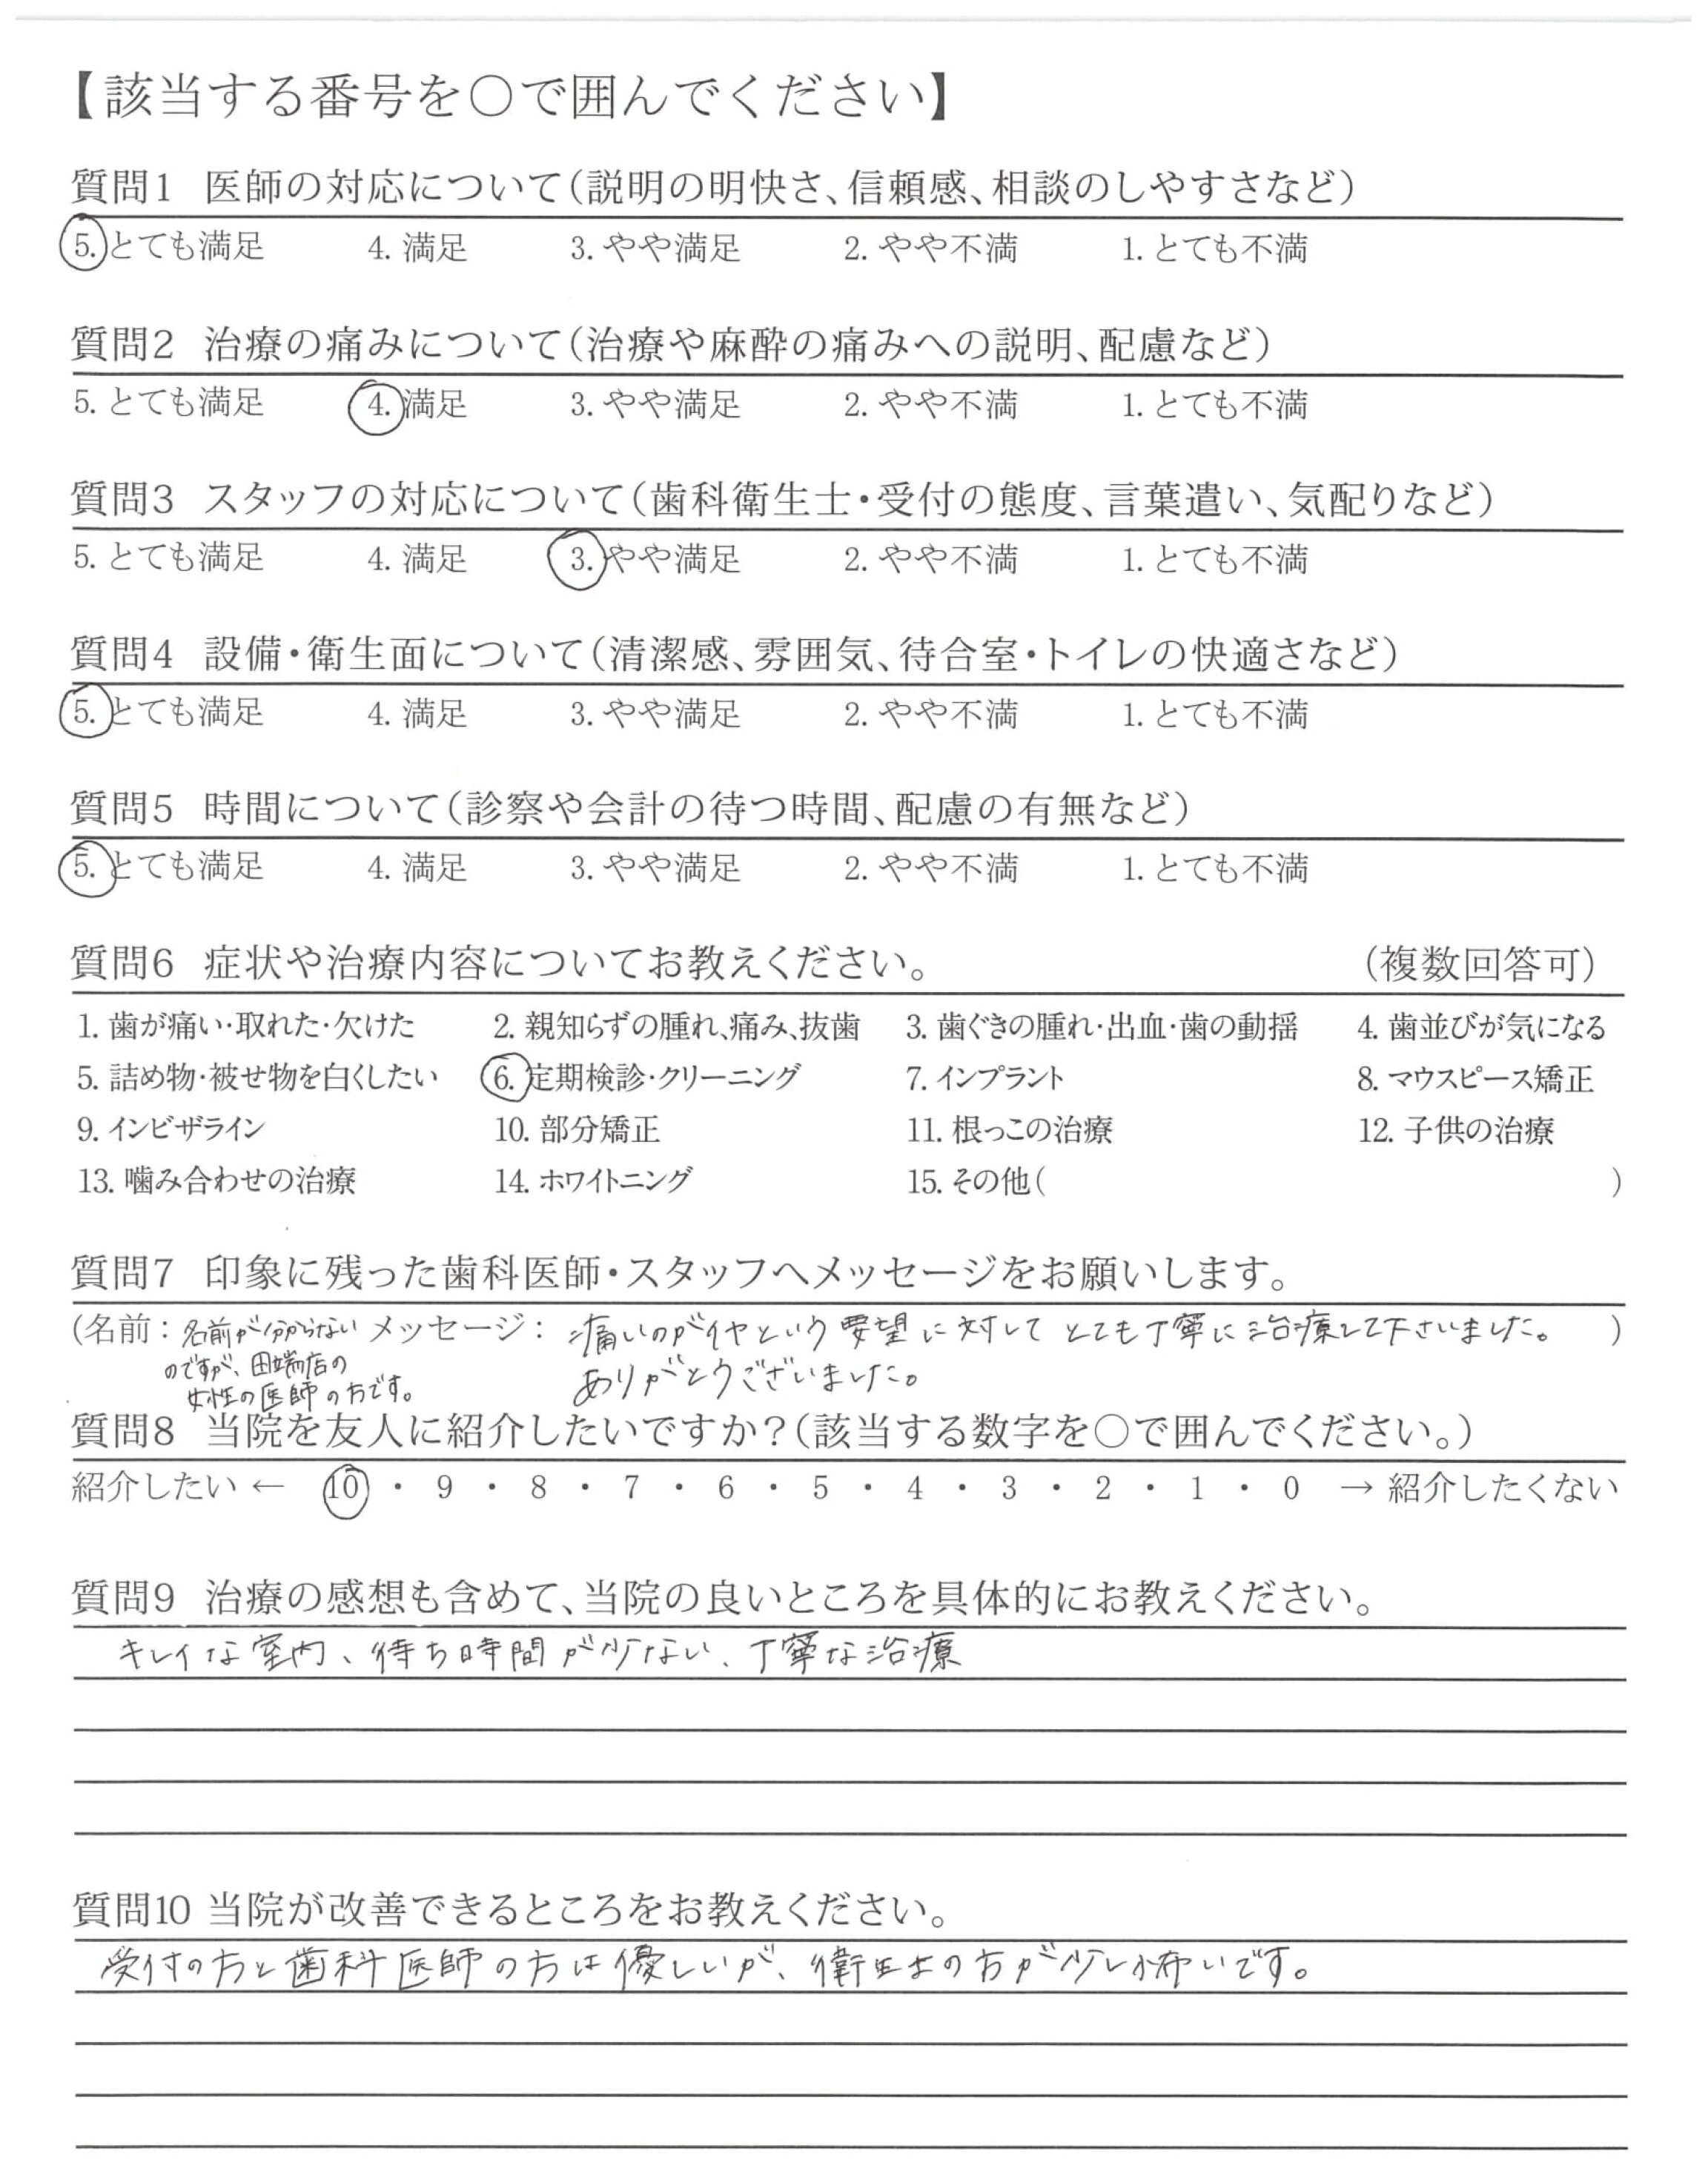 【該当する番号を○で囲んでください】
質問1 医師の対応について(説明の明快さ、信頼感、相談のしやすさなど)
5. とても満足 4. 満足 3. やや満足 2. やや不満 1. とても不満
質問2 治療の痛みについて(治療や麻酔の痛みへの説明、配慮など)
5. とても満足 4. 満足 3. やや満足 2. やや不満 1. とても不満
質問3 スタッフの対応について(歯科衛生士・受付の態度、言葉遣い、気配りなど)
5. とても満足 4. 満足 3. やや満足 2. やや不満 1. とても不満
質問4 設備・衛生面について(清潔感、雰囲気、待合室・トイレの快適さなど)
5. とても満足 4. 満足 3. やや満足 2. やや不満 1. とても不満
質問5 時間について(診察や会計の待つ時間、配慮の有無など)
5. とても満足 4. 満足 3. やや満足 2. やや不満 1. とても不満
質問6 症状や治療内容についてお教えください。 (複数回答可)
1. 歯が痛い・取れた・欠けた 2. 親知らずの腫れ、痛み、抜歯 3. 歯ぐきの腫れ・出血・歯の動揺 4. 歯並びが気になる
5. 詰め物・被せ物を白くしたい 6. 定期検診・クリーニング 7. インプラント 8. マウスピース矯正
9. インビザライン 10. 部分矯正 11. 根っこの治療 12. 子供の治療
13. 噛み合わせの治療 14. ホワイトニング 15. その他( )
質問7 印象に残った歯科医師・スタッフへメッセージをお願いします。
(名前: 名前が分からない メッセージ: 痛いのがイヤという要望に対してとても丁寧に治療して下さいました。 )
のですが、田端店の
女性の医師の方です。 ありがとうございました。
質問8 当院を友人に紹介したいですか?(該当する数字を○で囲んでください。)
紹介したい ← 10 ・ 9 ・ 8 ・ 7 ・ 6 ・ 5 ・ 4 ・ 3 ・ 2 ・ 1 ・ 0 → 紹介したくない
質問9 治療の感想も含めて、当院の良いところを具体的にお教えください。
キレイな室内、待ち時間が少ない、丁寧な治療
質問10 当院が改善できるところをお教えください。
受付の方と歯科医師の方は優しいが、衛生士の方が少し怖いです。